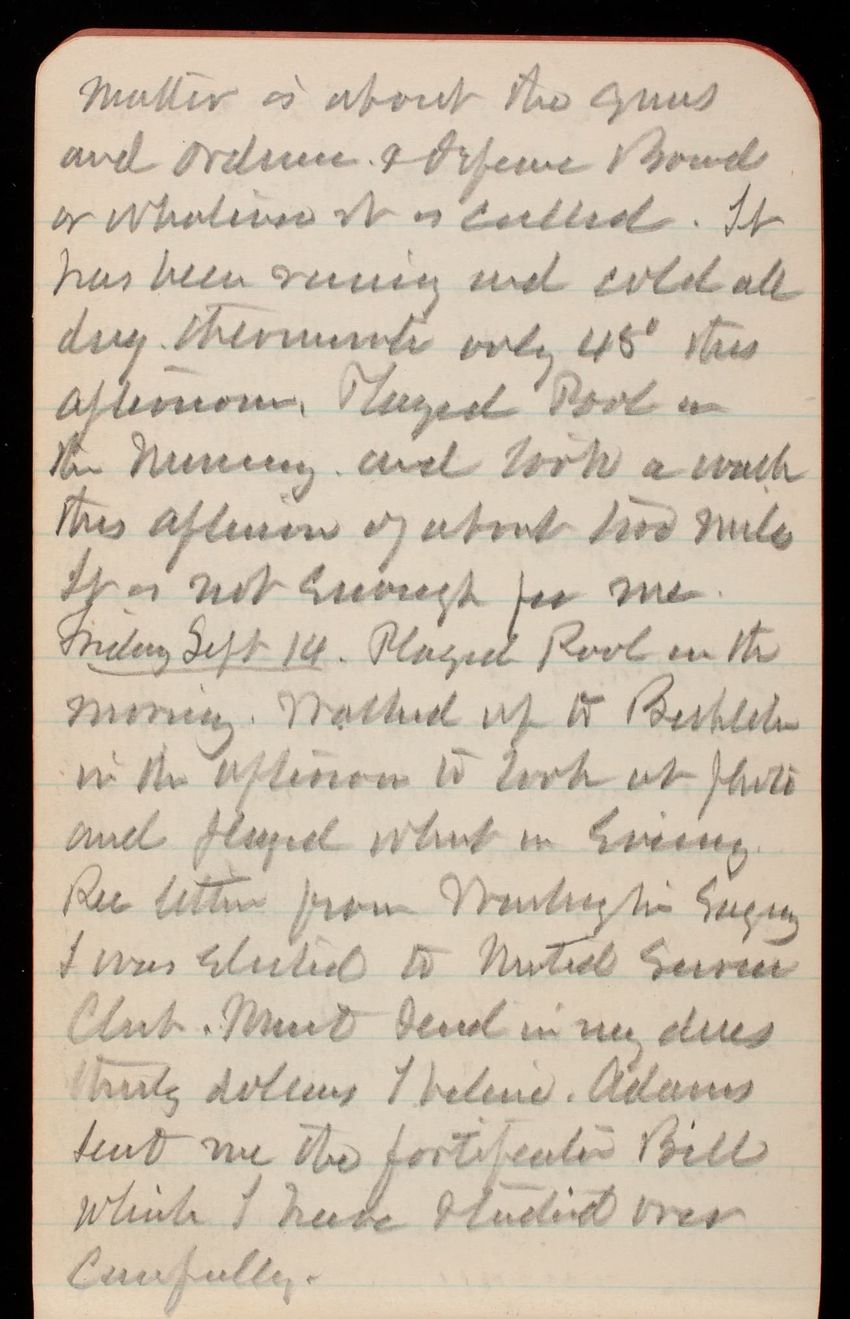 matter is about the guns
and Ordnance & Defence Board
or whatever it is called. It
has been raining and cold all
day. thermometer only 45° this
afternoon. Played Pool in
the morning and took a walk
this afternoon of about two miles
It is not enough for me.
Friday Sept 14. Played Pool in the
morning. Walked up to Bethlehem
in the afternoon to look at photo
and played whist in Evening.
Rec letter from Washington Saying
I was elected to United Service
Club. Must send in my dues
thirty dollars I believe. Adams
sent me the fortification Bill
which I have studied over
carefully.